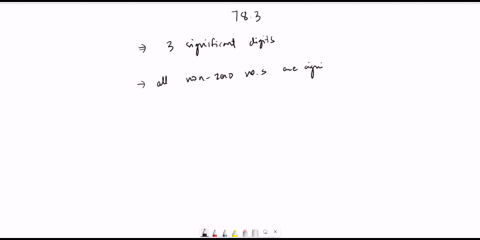 78.3
⇒ 3 significant digits
→ all non-zero no.s are signi